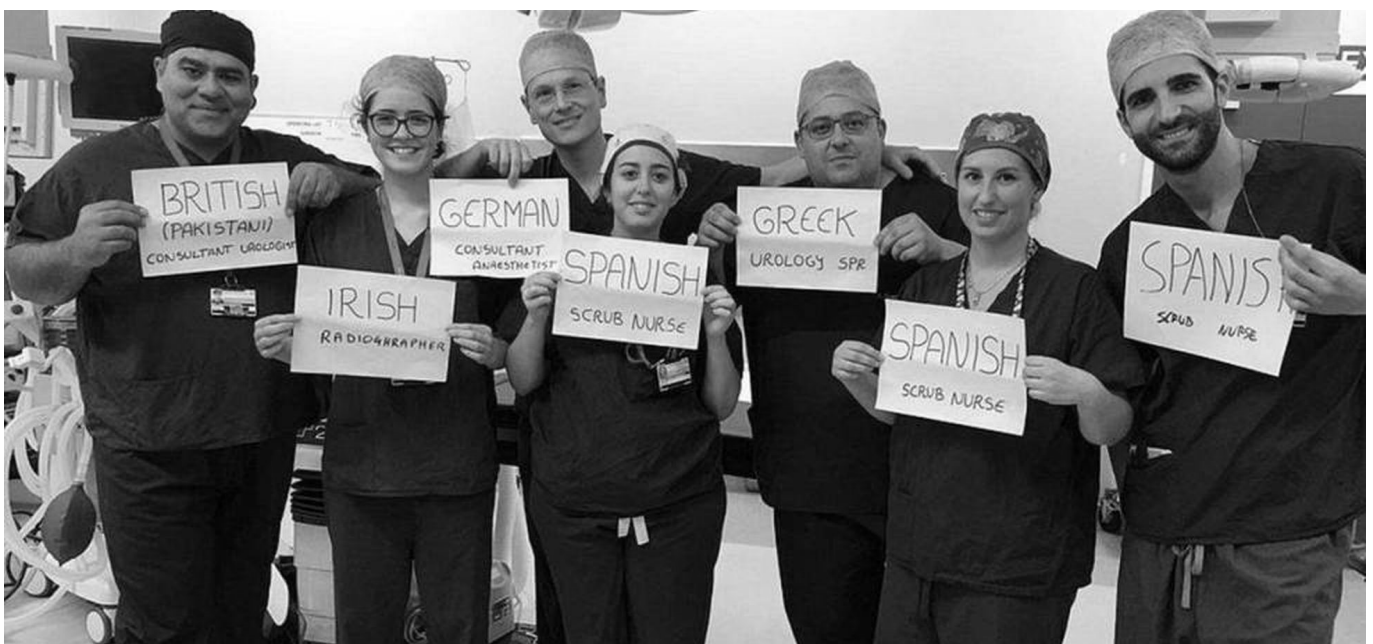 BRITISH
(PAKISTANI)
CONSULTANT UROLOGIST
IRISH
RADIOGHRAPHER
GERMAN
CONSULTANT
ANAESTHETIST
SPANISH
SCRUB NURSE
GREEK
UROLOGY SPR
SPANISH
SCRUB NURSE
SPANIS
SCRUB NURSE